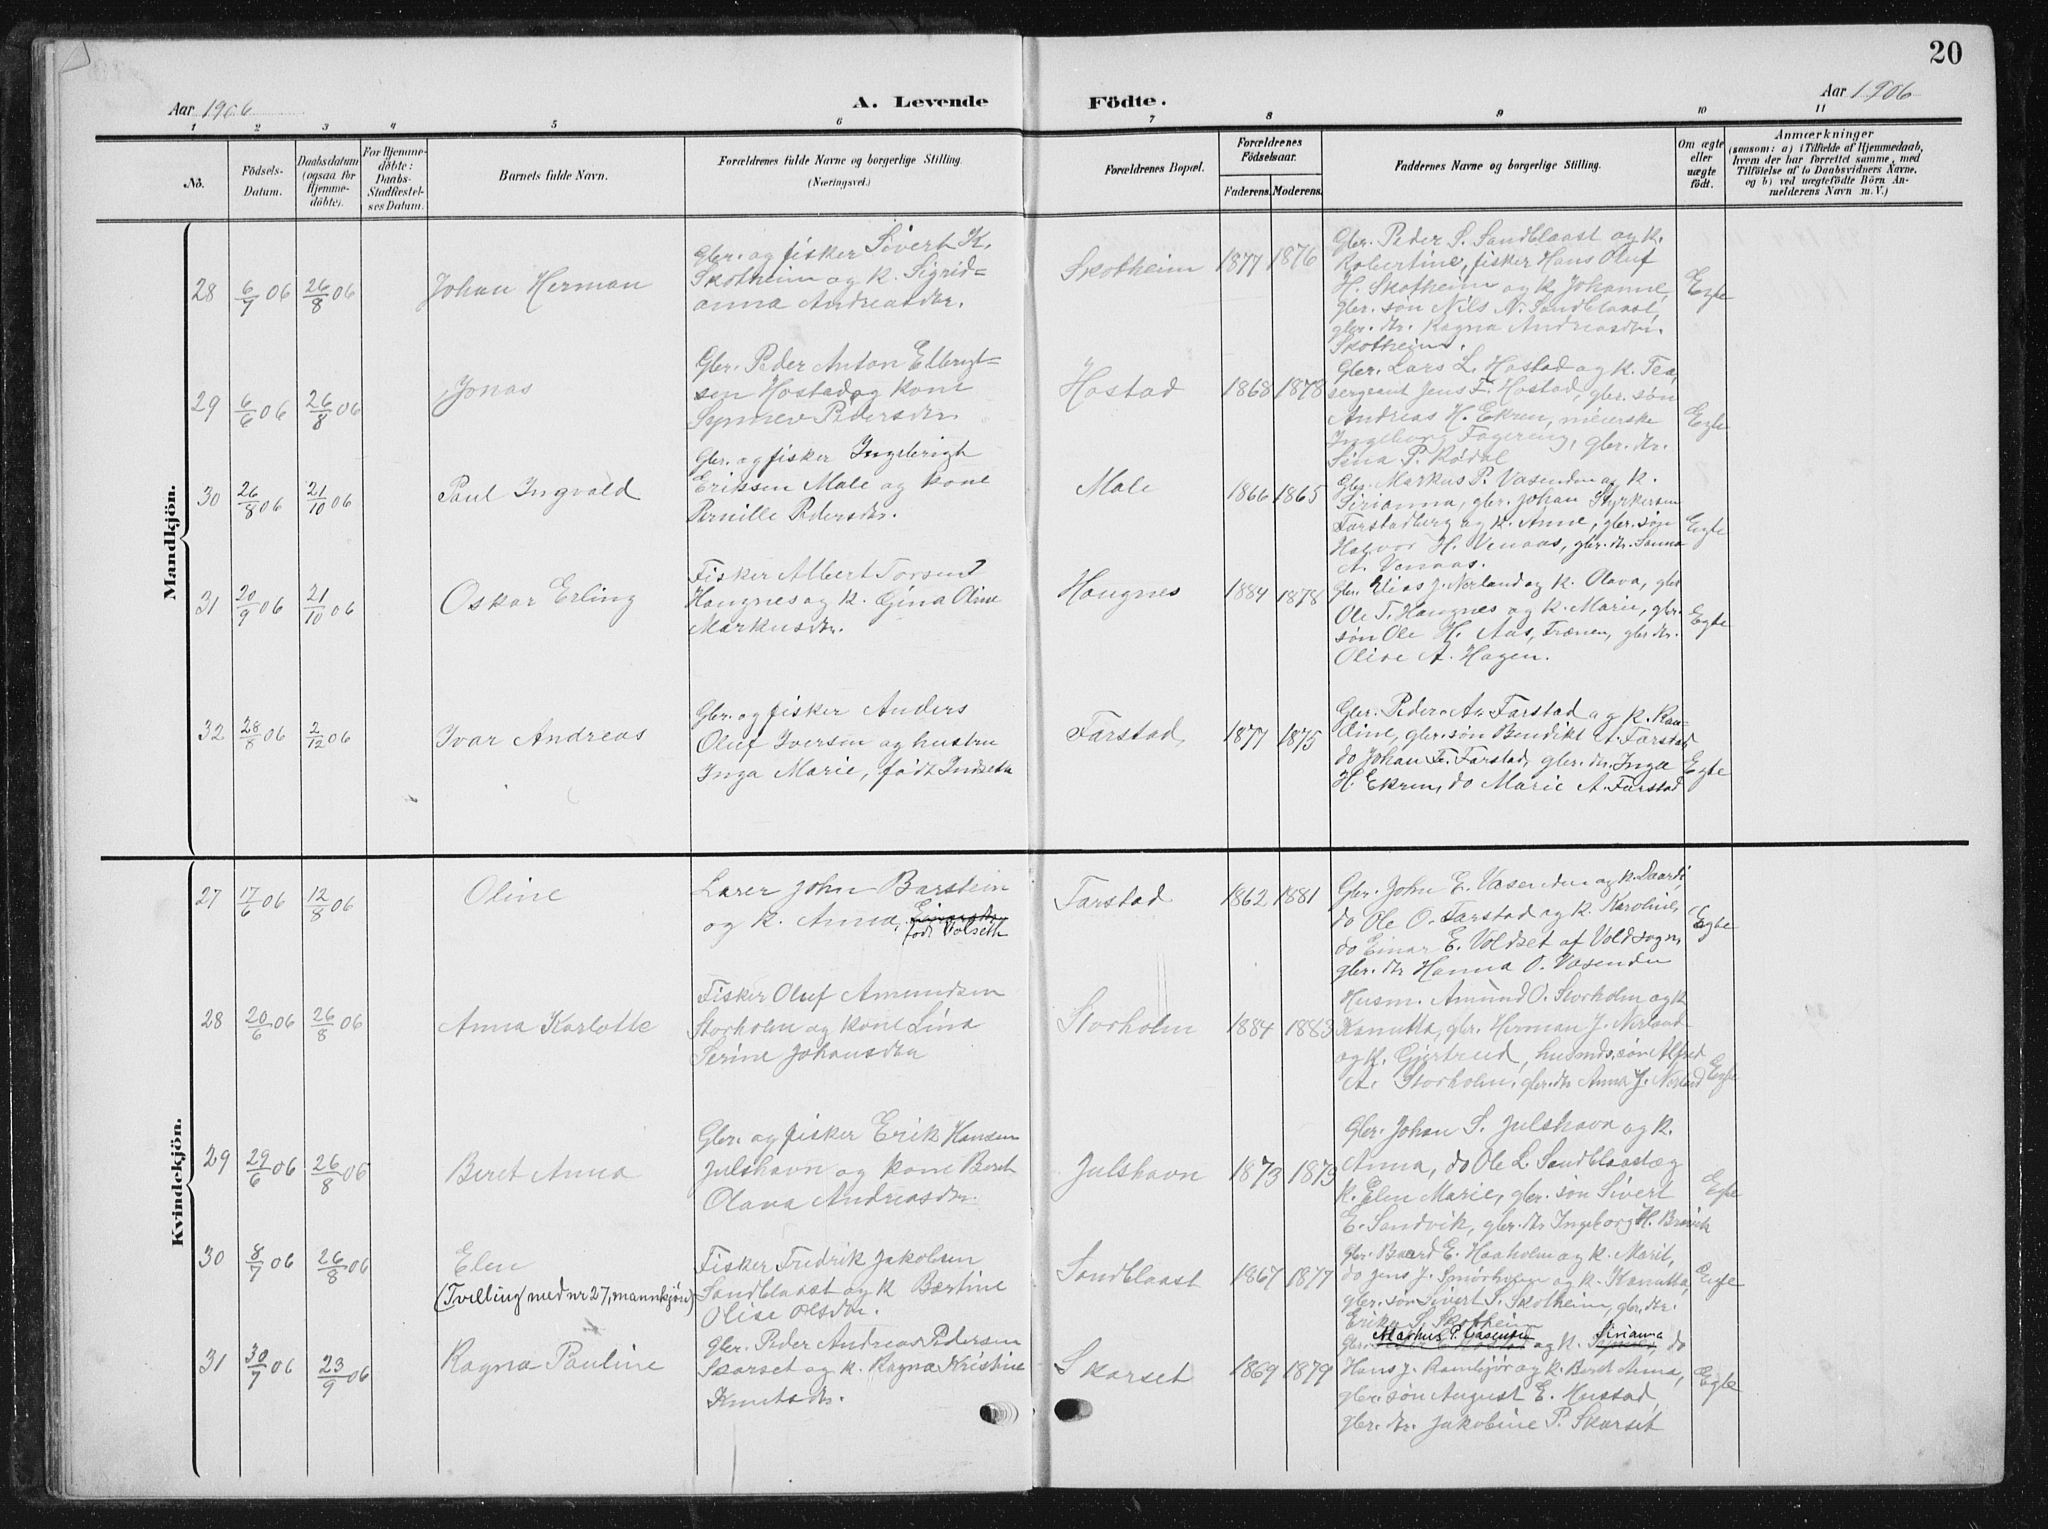 20
Aar 1906
A. Levende
Födte.
Aar 1906
1 2 3 4 5 6 7 8 9 10 11
No.
Födsels-
Datum.
Daabsdatum
(ogsaa for
Hjemme-
döbte).
For Hjemme-
döbte:
Daabs-
Stadfæstel-
ses Datum.
Barnets fulde Navn.
Forældrenes fulde Navne og borgerlige Stilling.
(Næringsvei.)
Forældrenes Bopæl.
Forældrenes
Födselsaar.
Faderens. Moderens.
Faddernes Navne og borgerlige Stilling.
Om ægte
eller
uægte
födt.
Anmærkninger
(saasom: a) i Tilfælde af Hjemmedaab,
hvem der har forrettet samme, med
Tilföielse af to Daabsvidners Navne,
og b) ved uægtefödte Börn An-
melderens Navn m. V.)
Mandkjön.
28 6/7 06 26/8 06
Johan Herman
Gbr. og fisker Sivert K.
Skotheim og k. Sigrid-
anna Andreasdtr.
Skotheim
1877 1876
Gbr. Peder S. Sandblaast og k.
Robertine, fisker Hans Oluf
H. Skotheim og k. Johanne,
gbr. søn Nils N. Sandblaast,
gbr. dtr. Ragna Andreasdtr.
Skotheim.
Egte
29 6/6 06 26/8 06
Jonas
Gbr. Peder Anton Elbrigt-
sen Hostad og kone
Synnev Pedersdtr.
Hostad
1868 1878
Gbr. Lars L. Hostad og k. Tea,
sergeant Jens F. Hostad, gbr. søn
Andreas H. Ekren, meierske
Ingeborg Fagereng, gbr. dtr.
Sina P. Rødal
Egte
30 26/8 06 21/10 06
Paul Ingvald
Gbr. og fisker Ingebrigt
Eriksen Male og kone
Pernille Pedersdtr.
Male
1866 1865
Gbr. Markus P. Vasenden og k.
Sirianna, gbr. Johan Styrkersen
Farstadberg og k. Anne, gbr. søn
Halvor H. Venaas, gbr. dtr. Sanna
A. Venaas.
Egte
31 20/9 06 21/10 06
Oskar Erling
Fisker Albert Torsen
Haugnes og k. Gina Oline
Markusdtr.
Haugnes
1884 1878
Gbr. Elias J. Nerland og k. Olava, gbr
Ole T. Haugnes og k. Marie, gbr.
søn Ole H. Aas, Frænen, gbr. dtr.
Olive A. Hagen.
Egte
32 28/8 06 2/12 06
Ivar Andreas
Gbr. og fisker Anders
Oluf Iversen og hustru
Inga Marie, født Indseth
Farstad
1877 1875
Gbr. Peder A. Farstad og k. Kan-
dine, gbr. søn Bendikt A. Farstad
do Johan F. Farstad, gbr. dtr. Inga
H. Ekren, do Marie A. Farstad
Egte
Kvindekjön.
27 17/6 06 12/8 06
Oline
Lærer John Barstein
og k. Anna, Einarsdtr
født Volseth
Farstad
1862 1881
Gbr. John E. Vasenden og k. Baardi,
do Ole O. Farstad og k. Karoline,
do Einar E. Voldset af Voldsogn,
gbr. dtr Hanna O. Vasenden
Egte
28 20/6 06 26/8 06
Anna Karlotte
Fisker Oluf Amundsen
Storholm og kone Lina
Serine Johansdtr
Storholm
1884 1883
Husm. Amund O. Storholm og k
Kanutta, gbr. Herman J. Nerland
og k. Gjertrud, husmds. søn Alfred
A. Storholm, gbr. dtr Anna J. Nerland
Egte
29 29/6 06 26/8 06
Beret Anna
Gbr. og fisker Erik Hansen
Julshavn og kone Beret
Olava Andreasdtr.
Julshavn
1873 1873
Gbr. Johan S. Julshavn og k.
Anna, do Ole L. Sandblaast og
k. Elen Marie, gbr. søn Sivert
E. Sandvik, gbr. dtr Ingeborg H. Brevik
Egte
30 8/7 06 26/8 06
Elen
(Tvilling med nr 27, mannkjøn)
Fisker Fredrik Jakobsen
Sandblaast og k Bertine
Olise Olsdtr.
Sandblaast
1867 1877
Gbr. Baard E. Haaholm og k. Marit,
do Jens J. Smørholm og k. Kanutta,
gbr. søn Sivert S. Skotheim, gbr. dtr.
Erika S. Skotheim
Egte
31 30/7 06 23/9 06
Ragna Pauline
Gbr. Peder Andreas Pedersen
Skarset og k. Ragna Kristine
Knutsdtr.
Skarset
1869 1879
Markus P. Vasenden Sirianna
Gbr. og k. do
Hans J. Ramsjør og k. Beret Anna,
gbr. søn August E. Hustad,
gbr. dtr. Jakobine P. Skarset
Egte